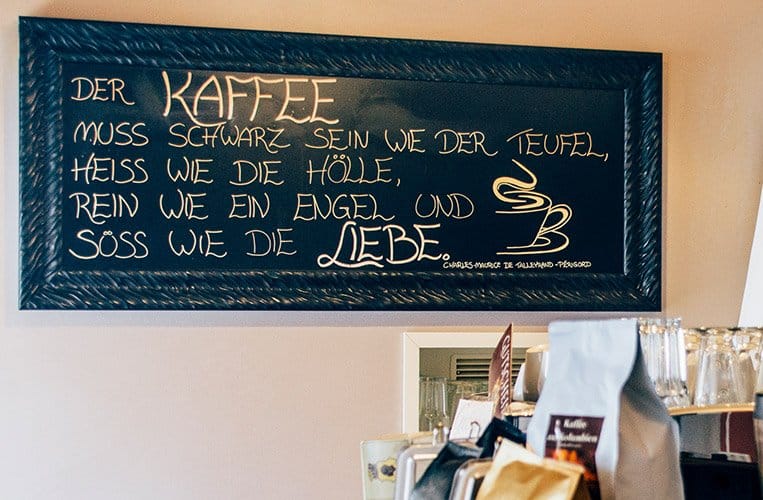 DER KAFFEE
MUSS SCHWARZ SEIN WIE DER TEUFEL,
HEISS WIE DIE HÖLLE,
REIN WIE EIN ENGEL UND
SÖSS WIE DIE LIEBE.
CHARLES-MAURICE DE TALLEYRAND-PÉRIGORD
Kaffee
aus Kolumbien